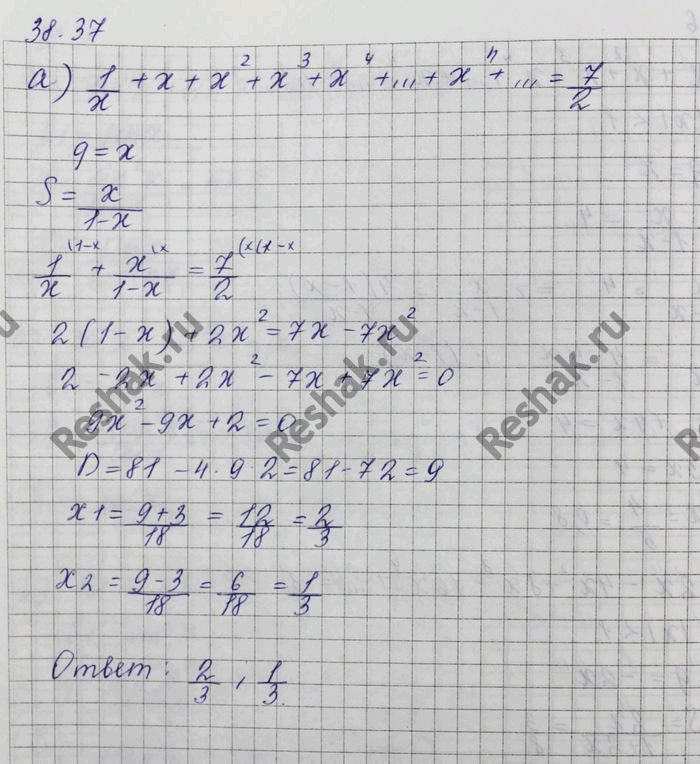 38.37
а) 1/x + x + x² + x³ + x⁴ + ... + xⁿ + ... = 7/2
q = x
S = x/(1-x)
1/x (1-x + x/(1-x) (x = 7/2 (x(1-x
2(1-x) + 2x² = 7x - 7x²
2 - 2x + 2x² - 7x + 7x² = 0
9x² - 9x + 2 = 0
D = 81 - 4 · 9 · 2 = 81 - 72 = 9
x1 = (9+3)/18 = 12/18 = 2/3
x2 = (9-3)/18 = 6/18 = 1/3
Ответ: 2/3 ; 1/3.
Reshak.ru
Reshak.ru
Reshak.ru